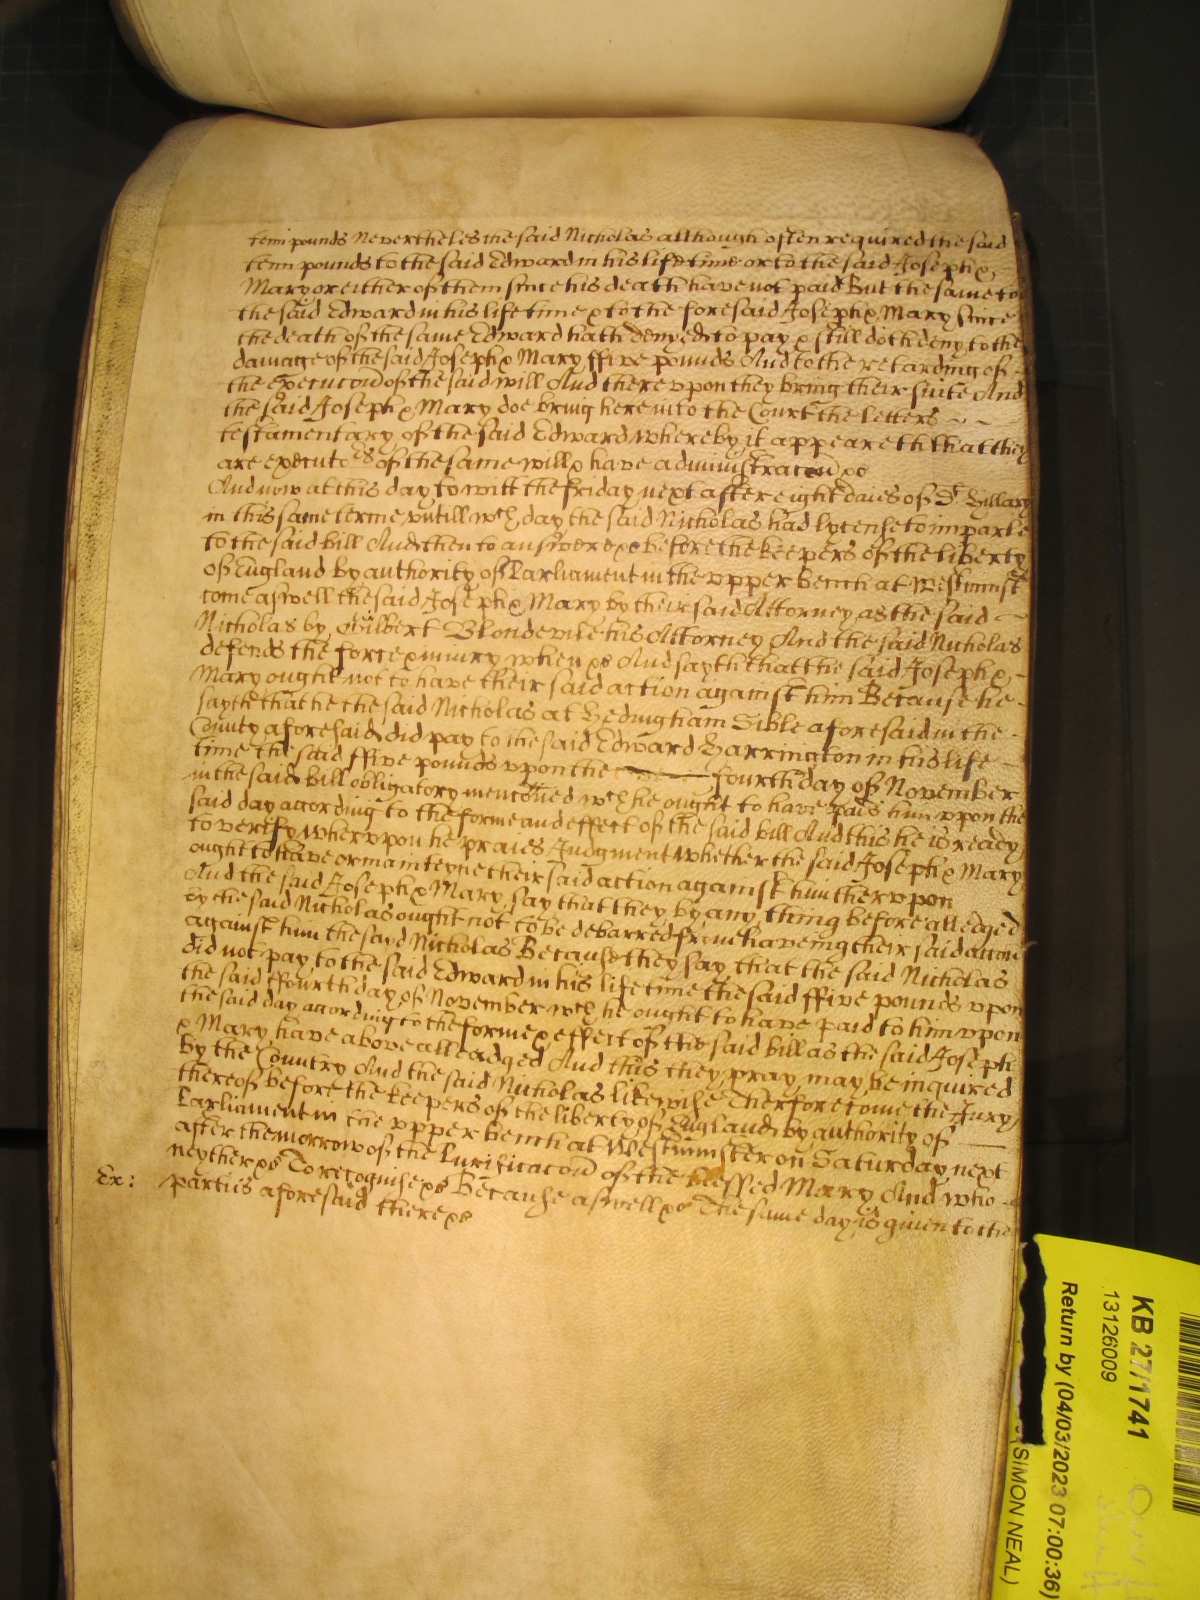 tenn pounds Neverthelesse the said Nicholas although often required the said
tenn pounds to the said Edward in his life time or to the said Joseph &
Mary or either of them since his death have not paid But the same to
the said Edward in his life time & to the foresaid Joseph & Mary since
the death of the same Edward hath denyed to pay & still doth deny to the
damage of the said Joseph & Mary ffive pounds And to the retarding of
the execucōn of the said will And there vpon they bring their suite And
the said Joseph & Mary doe bring here into the Court the letters
testamentary of the said Edward whereby it appeareth that they
are executors of the same will & have administracōn &c
And now at this day to witt the friday next after eight daies of St Hillary
in this same terme vntill wch day the said Nicholas had lycense to imparle
to the said bill And then to answere &c before the keepers of the liberty
of England by authority of Parliament in the vpper bench at Westminst
come aswell the said Joseph & Mary by their said Attorney as the said
Nicholas by Gilbert Blondevile his Attorney And the said Nicholas
defends the force & iniury when &c And sayth that the said Joseph &
Mary ought not to have their said action against him Because he
sayth that he the said Nicholas at Hedingham Sible aforesaid in the
County aforesaid did pay to the said Edward Harrington in his life
time the said ffive pounds vpon the fourth day of November
in the said bill obligatory mencōned wch he ought to have paid him vpon the
said day according to the forme and effect of the said bill And this he is ready
to verefy wher vpon he praies Judgment whether the said Joseph & Mary
ought to have or mainteyne their said action against him ther vpon
And the said Joseph & Mary say that they by any thing before alledged
by the said Nicholas ought not to be debarred from haveing their said accōn
against him the said Nicholas Because they say that the said Nicholas
did not pay to the said Edward in his life time the said ffive pounds vpon
the said ffourth day of November wch he ought to have paid to him vpon
the said day according to the forme & effect of the said bill as the said Joseph
& Mary have above alleadged And this they pray may be inquired
by the Country And the said Nicholas likewise Therfore come the Jury
thereof before the keepers of the liberty of England by authority of
Parliament in the vpper bench at Westminster on Saturday next
after the morrow of the Purificacōn of the blessed Mary And who
neyther &c To recognise &c Because aswell &c The same day is given to the
Ex: parties aforesaid there &c
KB 27/1741
13126009
Return by (04/03/2023 07:00:36)
(SIMON NEAL)